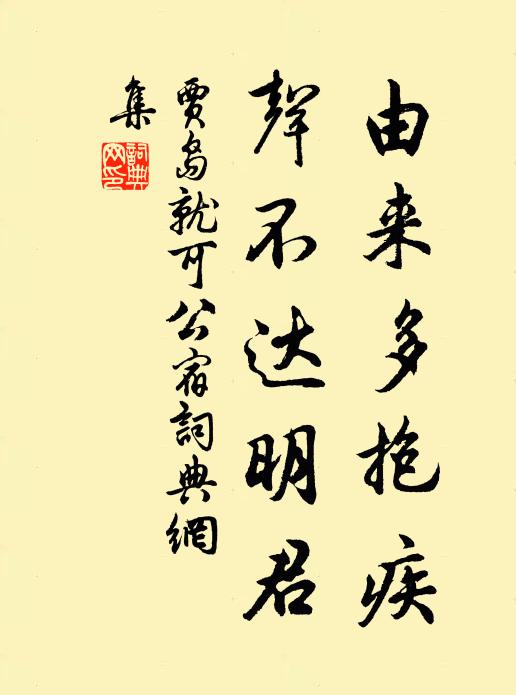 由来多抱疾
聲不达明君
賈島就可公宿詞典網
集
詞典
网印